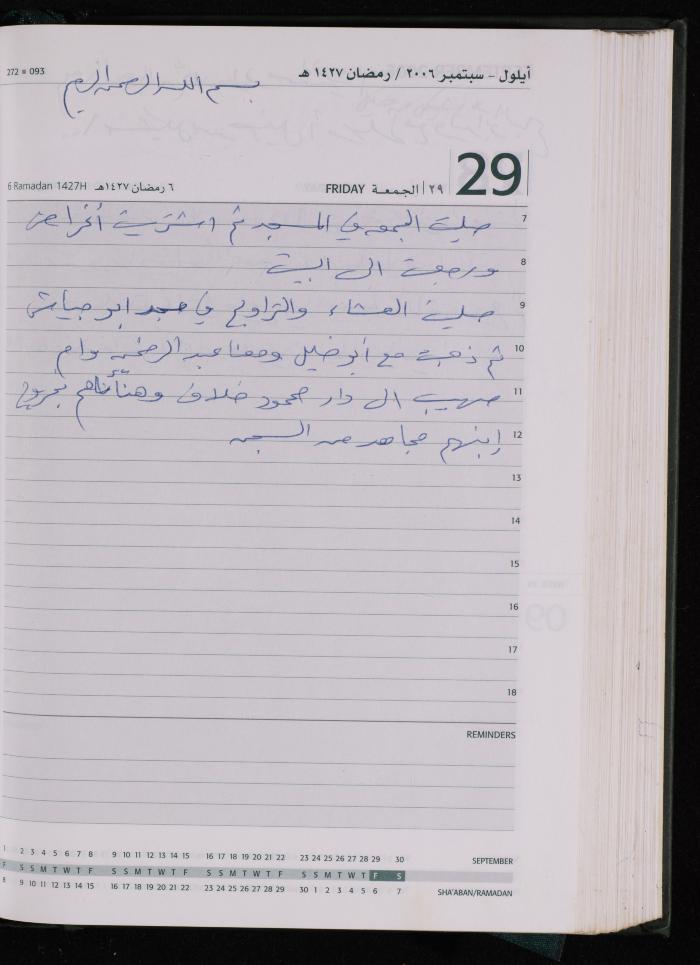 أيلول - سبتمبر ٢٠٠٦ / رمضان ١٤٢٧ هـ
272 = 093
بسم الله الرحمن الرحيم
29
٢٩ | الجمعة FRIDAY
٦ رمضان ١٤٢٧هـ 6 Ramadan 1427H
7 صليت الجمعه في المسجد ثم اشتريت أغراض
8 ورجعت الى البيت
9 صليت العشاء والتراويح في مسجد ابو عياش
10 ثم ذهبت مع ابو خليل ومعنا عبد الرحمن وام
11 صهيب الى دار محمود خلاف وهنأناهم بخروج
12 إبنهم مجاهد من السجن
13
14
15
16
17
18
REMINDERS
1 2 3 4 5 6 7 8 9 10 11 12 13 14 15 16 17 18 19 20 21 22 23 24 25 26 27 28 29 30 SEPTEMBER
F S S M T W T F S S M T W T F S S M T W T F S S M T W T F S
8 9 10 11 12 13 14 15 16 17 18 19 20 21 22 23 24 25 26 27 28 29 30 1 2 3 4 5 6 7 SHA'ABAN/RAMADAN